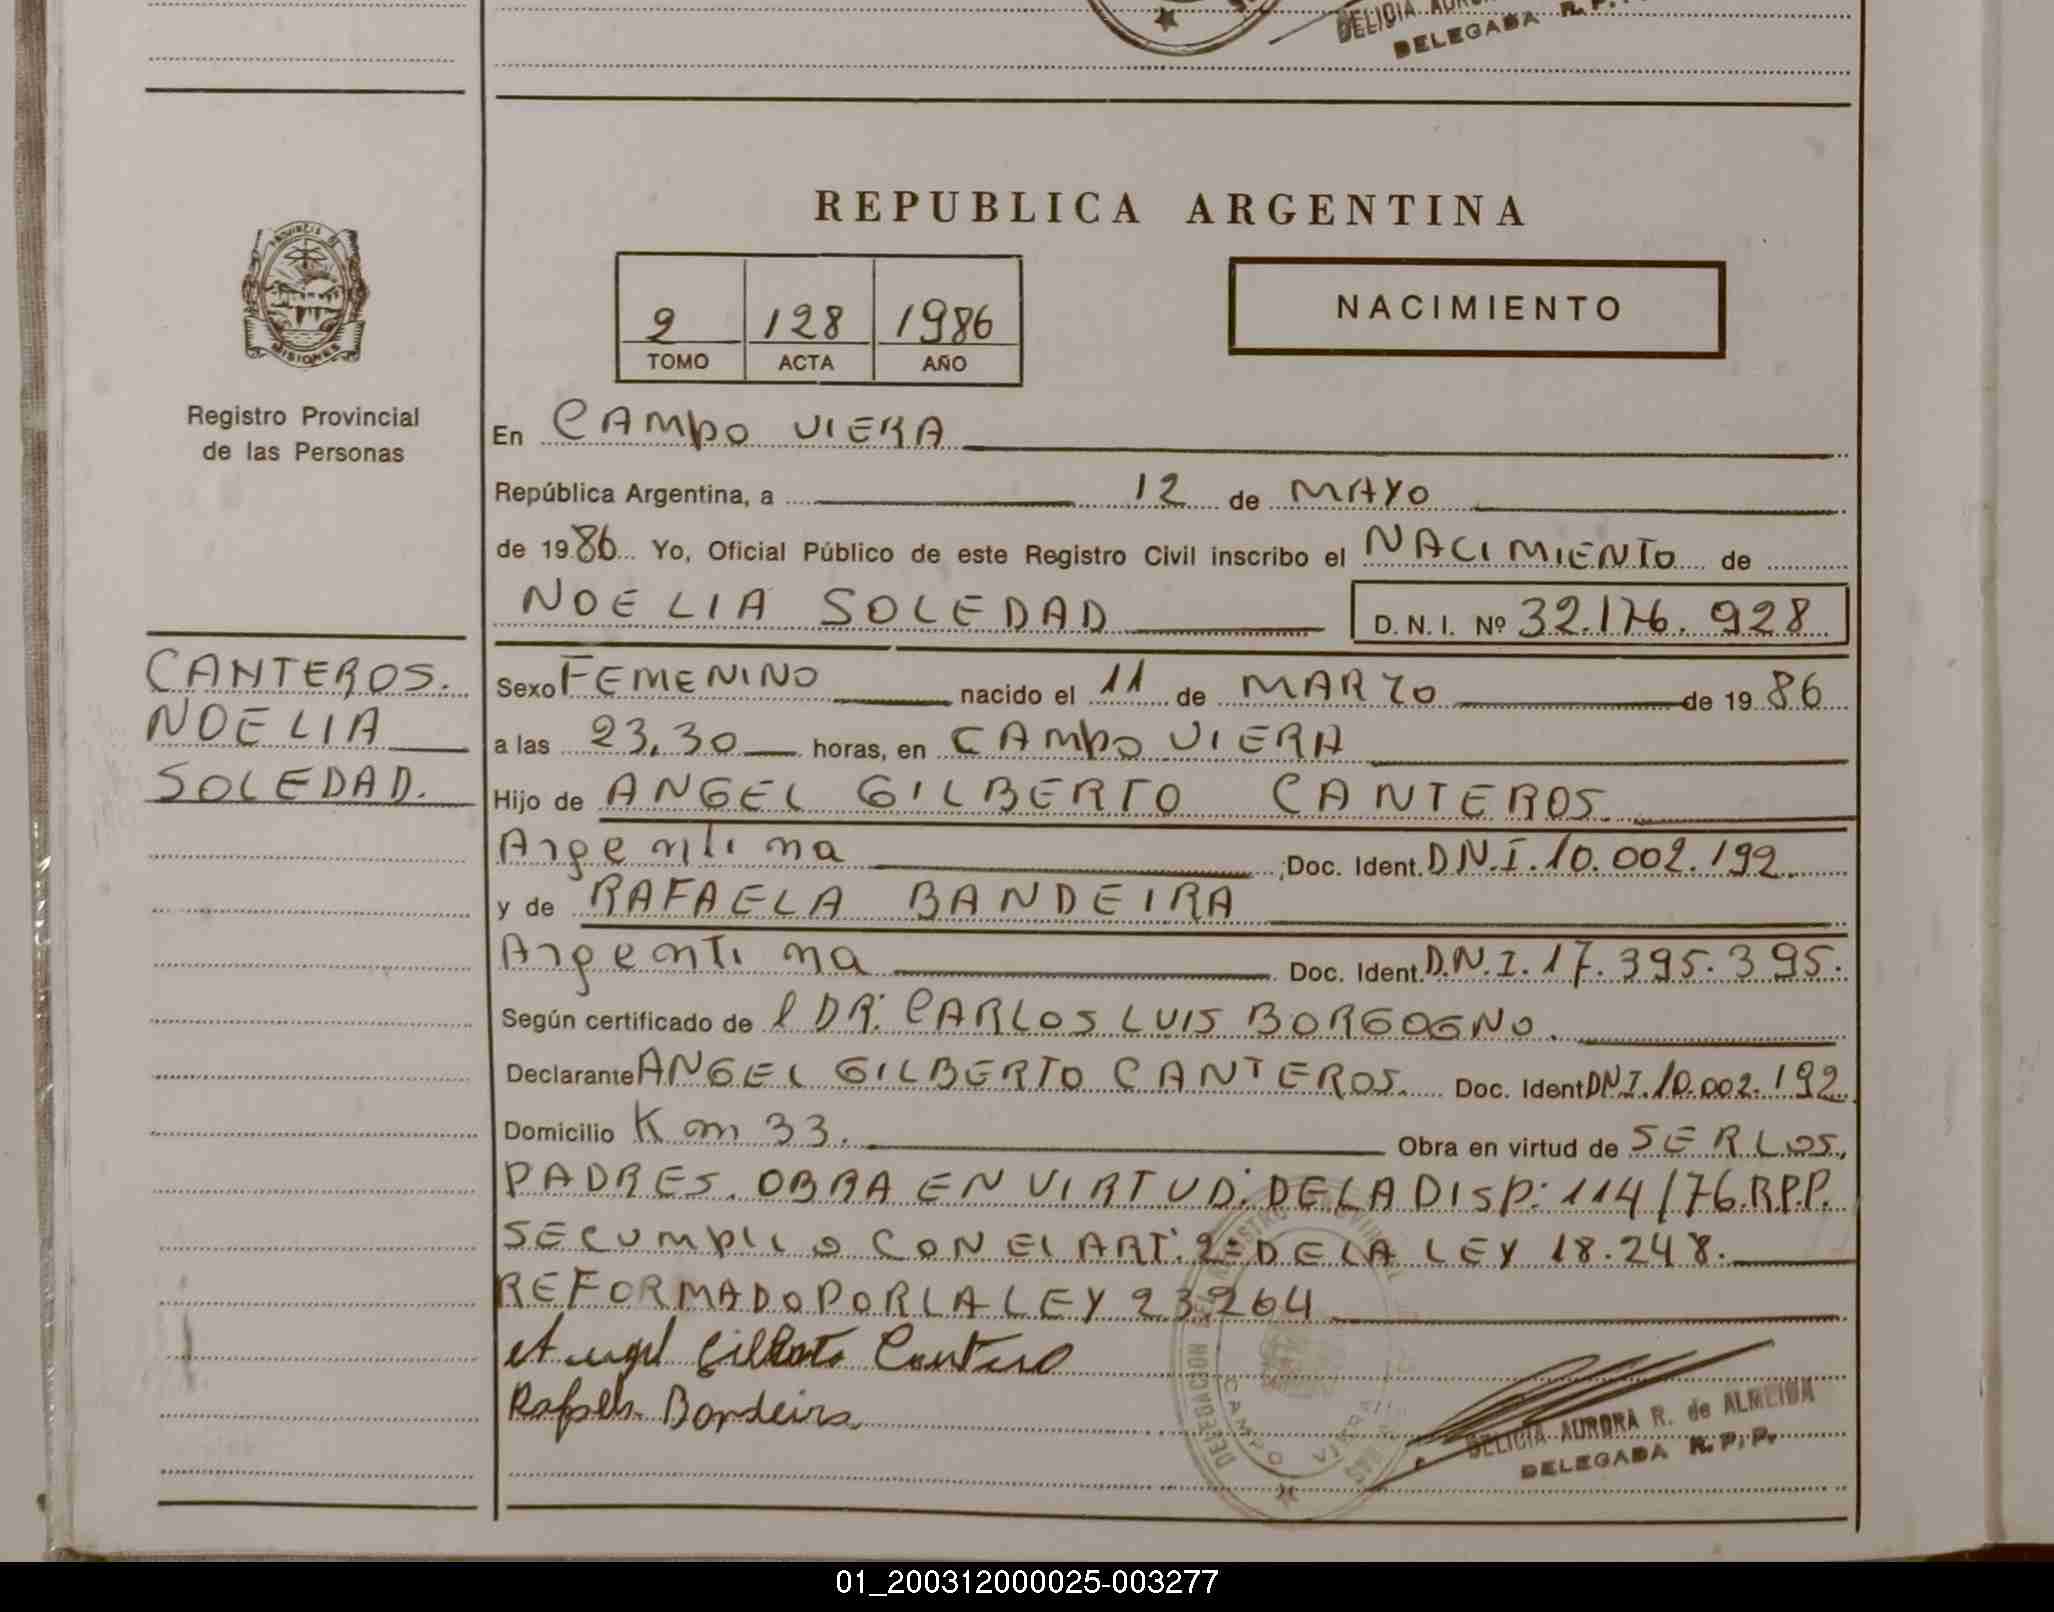 DELEGADA R.P.
REPUBLICA ARGENTINA
PROVINCIA DE
MISIONES
2 128 1986
TOMO ACTA AÑO
NACIMIENTO
Registro Provincial
de las Personas
CANTEROS.
NOELIA
SOLEDAD.
En CAMPO VIERA
República Argentina, a 12 de MAYO
de 1986 Yo, Oficial Público de este Registro Civil inscribo el NACIMIENTO de
NOELIA SOLEDAD D.N.I. Nº 32.176.928
Sexo FEMENINO nacido el 11 de MARZO de 1986
a las 23,30 horas, en CAMPO VIERA
Hijo de ANGEL GILBERTO CANTEROS.
Argentina ;Doc. Ident. D.N.I. 10.002.192.
y de RAFAELA BANDEIRA
Argentina Doc. Ident. D.N.I. 17.395.395.
Según certificado de l DR. CARLOS LUIS BORGOGNO.
Declarante ANGEL GILBERTO CANTEROS. Doc. Ident DNI. 10.002.192
Domicilio Km 33. Obra en virtud de SER LOS,
PADRES. OBRA EN VIRTUD. DE LA DISP: 114/76.R.P.P.
SE CUMPLIO CON EL ART. 2º DE LA LEY 18.248.
REFORMADO POR LA LEY 23264
Angel Gilberto Canteros
Rafaela Bandeira
DELEGACION DEL REGISTRO PROVINCIAL
CAMPO VIERA
DELICIA AURORA R. de ALMEIDA
DELEGADA R.P.P.
01_200312000025-003277